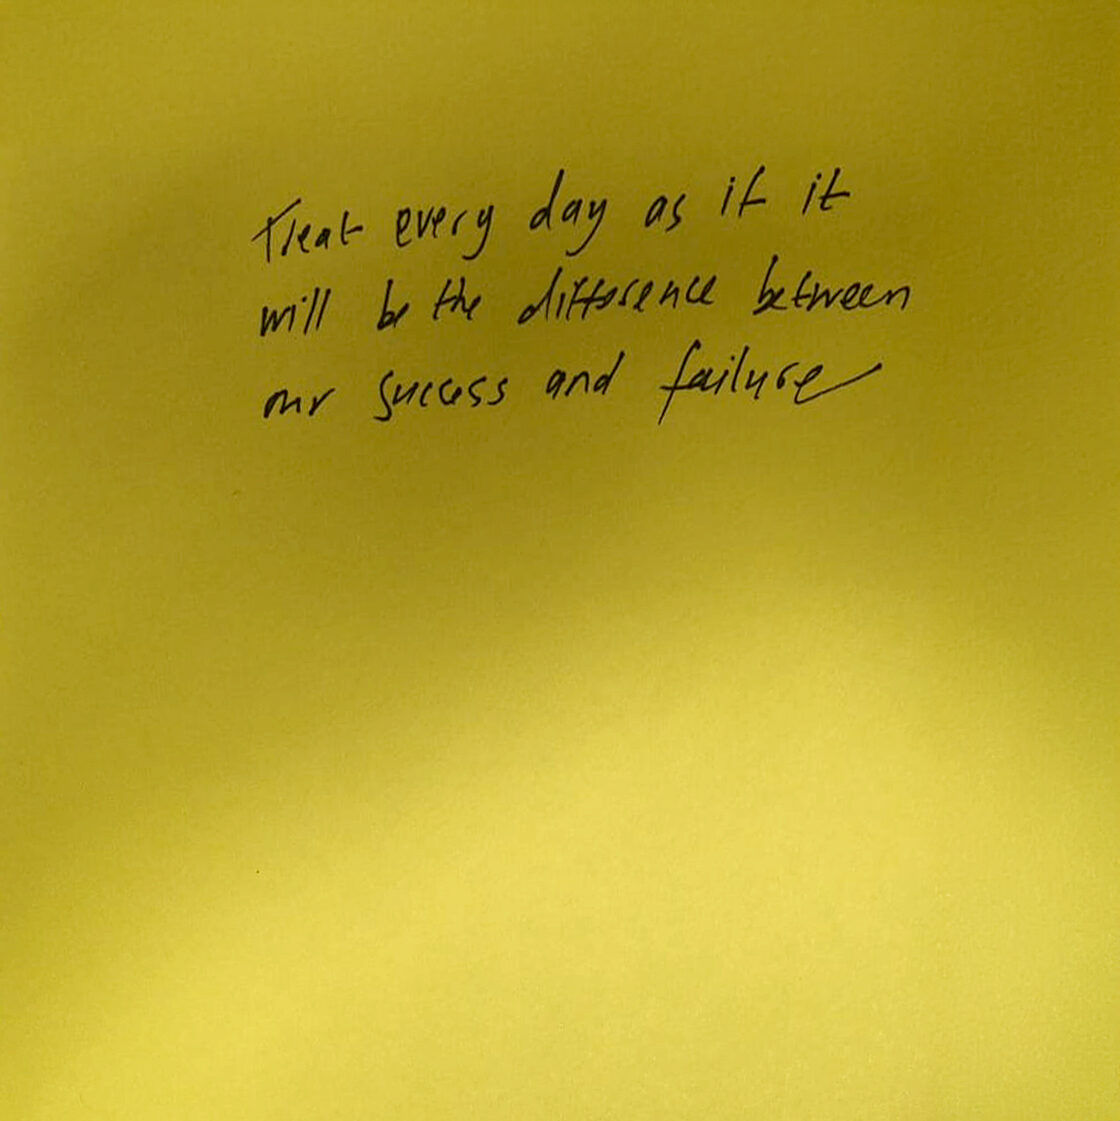 Treat every day as if it
will be the difference between
our success and failure